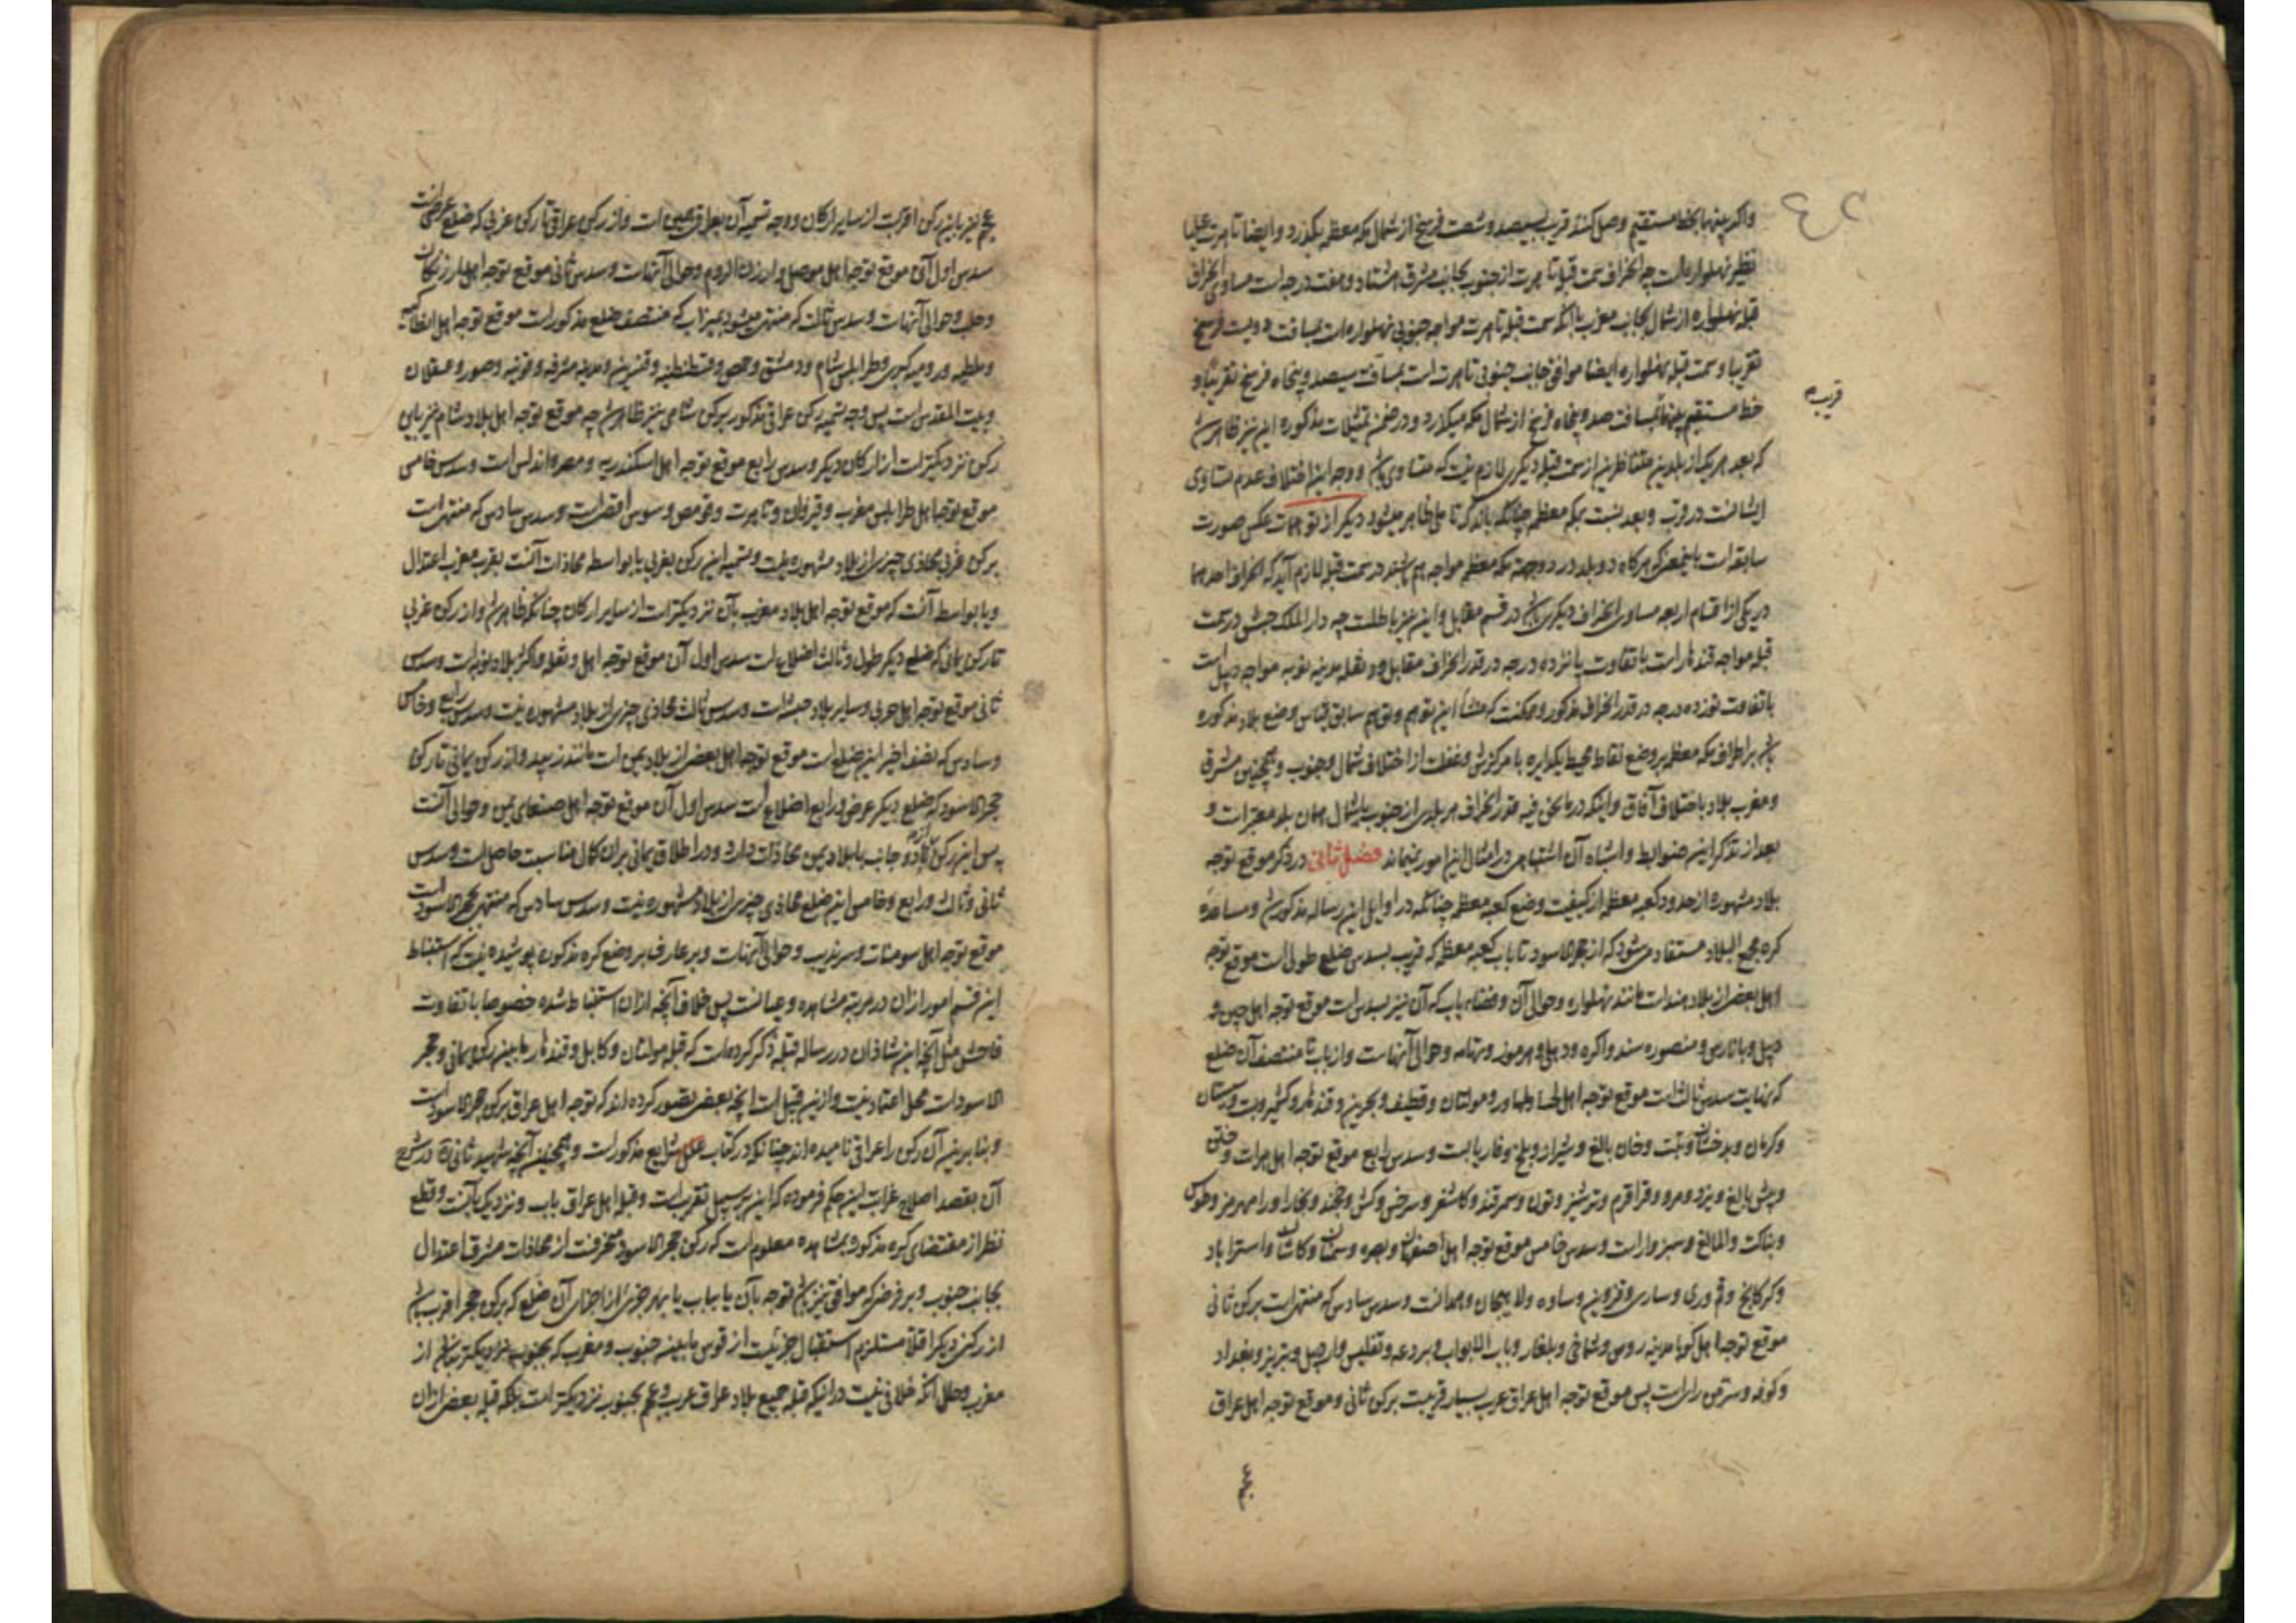 واکر بینهما بخط مستقیم وصل کنند قریب بسیصد وشصت فرسخ از شمال مکه معظمه بگذرد وایضا تاهرت علیا
نظیر نهلواره است چه انحراف سمت قبله تاهرت از جنوب بجانب مشرق هشتاد وهفت درجه است مساوی انحراف
قبله نهلواره از شمال بجانب مغرب باآنکه سمت قبله تاهرت مواجه جنوبی نهلواره است بمسافت دویست فرسخ
تقریبا وسمت قبله نهلواره ایضا موافق جانب جنوبی تاهرت است بمسافت سیصد وپنجاه فرسخ تقریبا و
خط مستقیم بینهما بمسافت صد وپنجاه فرسخ از شمال مکه میکذرد ودر ضمن تمثیلات مذکوره این نیز ظاهر شد
قریبه
که بعد هر یک از بلدین متناظرین از سمت قبله دیکری لازم نیست که متساوی باشد ووجه این اختلاف عدم تساوی
ایشانست در قرب وبعد نسبت بمکه معظمه چنانکه باندک تاملی ظاهر میشود دیکر از توهمات عکس صورت
سابقه است باینمعنی که هرکاه دو بلد در دو جهت مکه معظمه مواجه هم باشند در سمت قبله لازم آید که انحراف احدهما
در یکی از اقسام اربعه مساوی انحراف دیکری باشد در قسم مقابل واین نیز باطلست چه دار الملک حبش در سمت
قبله مواجه قندهار است با تفاوت پانزده درجه در قدر انحراف مقابل ودنقله مدینه نوبه مواجه دیبل است
با تفاوت نوزده درجه در قدر انحراف مذکور وممکنست که منشأ این توهم وتوهم سابق قیاس وضع بلاد مذکوره
باشد بر اطراف مکه معظمه بر وضع نقاط محیط یکدایره با مرکزش وغفلت از اختلاف شمال وجنوب وهمچنین مشرق
ومغرب بلاد باختلاف آفاق واینکه در مانحن فیه قدر انحراف هر بلدی از جنوب یا شمال همان بلد معتبر است و
بعد از تذکر این ضوابط واشباه آن اشتباهی در امثال این امور نمیماند فصل ثانی در ذکر موقع توجه
بلاد مشهوره از حدود کعبه معظمه از کیفیت وضع کعبه معظمه چنانکه در اوایل این رساله مذکور شد ومساعده
کره مجمع البلاد مستفاد میشود که از حجر الاسود تا باب کعبه معظمه که قریب بسدس ضلع طولی است موقع توجه
اهل بعض از بلاد هند است مانند نهلواره وحوالی آن وفضاء باب که آن نیز بسدس است موقع توجه اهل چین و
دیبل وبنارس ومنصوره سند واکره ودهلی وهرموز وتهامه وحوالی آنهاست واز باب تا منتصف آن ضلع
که نهایت سدس ثالث است موقع توجه اهل لحسا ولهاور ومولتان وقطیف وبحرین وقندهار وکشمیر وبست وسیستان
وکرمان وبدخشان وتبت وخان بالغ وشیراز وبلخ وفاریابست وسدس رابع موقع توجه اهل هرات وختن
وپیش بالغ ویزد ومرو وقراقرم وترشیز وتون وسمرقند وکاشغر وسرخس وکش وخجند وبخارا ورامهرمز وطوس
وبناکت والمالغ وسبزوار است وسدس خامس موقع توجه اهل اصفهان وبصره وسمنان وکاشان واستراباد
وکرکانج وقم وری وساری وقزوین وساوه ولاهیجان وهمدانست وسدس سادس که منتهی است برکن ثانی
موقع توجه اهل کویابه مدینه روس وشماخی وبلغار وباب الابواب وبردعه وتفلیس واردبیل وتبریز وبغداد
وکوفه وسر من رای است پس موقع توجه اهل عراق عرب بسیار قریبست برکن ثانی وموقع توجه اهل عراق
عجم نیز باین رکن اقربست از سایر ارکان ووجه تسمیه آن بعراقی همین است واز رکن عراقی تا رکن غربی که ضلع عرض است
سدس اول آن موقع توجه اهل موصل وارزن الروم وحوالی آنهاست وسدس ثانی موقع توجه اهل ارزنجان
وحلب وحوالی آنهاست وسدس ثالث که منتهی میشود بمیزاب که منتصف ضلع مذکور است موقع توجه اهل انطاکیه
وملطیه ورومیه کبری وطرابلس شام ودمشق وحمص وقسطنطنیه وقنسرین ومدینه مشرفه وقونیه وصور وعسقلان
وبیت المقدس است پس وجه تسمیه رکن عراقی مذکور برکن شامی نیز ظاهر شد چه موقع توجه اهل بلاد شام نیز باین
رکن نزدیکتر است از ارکان دیکر وسدس رابع موقع توجه اهل اسکندریه ومصر واندلس است وسدس خامس
موقع توجه اهل طرابلس مغرب وقیروان وتاهرت وقومص وسوس اقصی است وسدس سادس که منتهی است
برکن غربی محاذی چیزی از بلاد مشهوره نیست وتسمیه این رکن بغربی یا بواسطه محاذات آنست بقرب مغرب اعتدال
ویا بواسطه آنست که موقع توجه اهل بلاد مغرب بآن نزدیکتر است از سایر ارکان چنانکه ظاهر شد واز رکن غربی
تا رکن یمانی که ضلع دیکر طول وثالث اضلاع است سدس اول آن موقع توجه اهل دنقله واکثر بلاد نوبه است وسدس
ثانی موقع توجه اهل جرمی وسایر بلاد حبشه است وسدس ثالث محاذی چیزی از بلاد مشهوره نیست وسدس رابع وخامس
وسادس که نصف اخیر این ضلع است موقع توجه اهل بعض از بلاد یمن است مانند زبید واز رکن یمانی تا رکن
حجر الاسود که ضلع دیکر عرض ورابع اضلاع است سدس اول آن موقع توجه اهل صنعای یمن وحوالی آنست
پس این رکن از هر دو جانب با بلاد یمن محاذات دارد ودر اطلاق یمانی بر آن کمال مناسبت حاصل است وسدس
ثانی وثالث ورابع وخامس این ضلع محاذی چیزی از بلاد مشهوره نیست وسدس سادس که منتهی بحجر الاسود است
موقع توجه اهل سومنات وسرندیب وحوالی آنهاست وبر عارف بر وضع کره مذکوره پوشیده نیست که استنباط
این قسم امور از آن در مرتبه مشاهده وعیانست پس خلاف آنچه از آن استنباط شده خصوصا با تفاوت
فاحش مثل آنچه ابن شاذان در رساله قبله ذکر کرده است که قبله مولتان وکابل وقندهار مابین رکن یمانی وحجر
الاسود است محل اعتماد نیست واز این قبیل است آنچه بعض تصور کرده اند که توجه اهل عراق برکن حجر الاسود است
وبنا برین آن رکن را عراقی نامیده اند چنانکه در کتاب علل شرایع مذکور است وهمچنین آنچه شهید ثانی ره در شرح
آن بقصد اصلاح غرابت این حکم فرموده که این بر سبیل تقریب است وقبله اهل عراق باب ونزدیک بآنست وقطع
نظر از مقتضای کره مذکوره بمشاهده معلوم است که رکن حجر الاسود منحرفست از محاذات مشرق اعتدال
بجانب جنوب وبر فرضی که موافق نیز باشد توجه بآن یا بباب یا بهر جزئی از اجزای آن ضلع که برکن حجر اقرب باشد
از رکن دیکر اقلا مستلزم استقبال جزئیست از قوس مابین جنوب ومغرب که بجنوب نزدیکتر نباشد از
مغرب وحال آنکه خلافی نیست در اینکه قبله جمیع بلاد عراق عرب وعجم بجنوب نزدیکتر است بلکه قبله بعض از آن